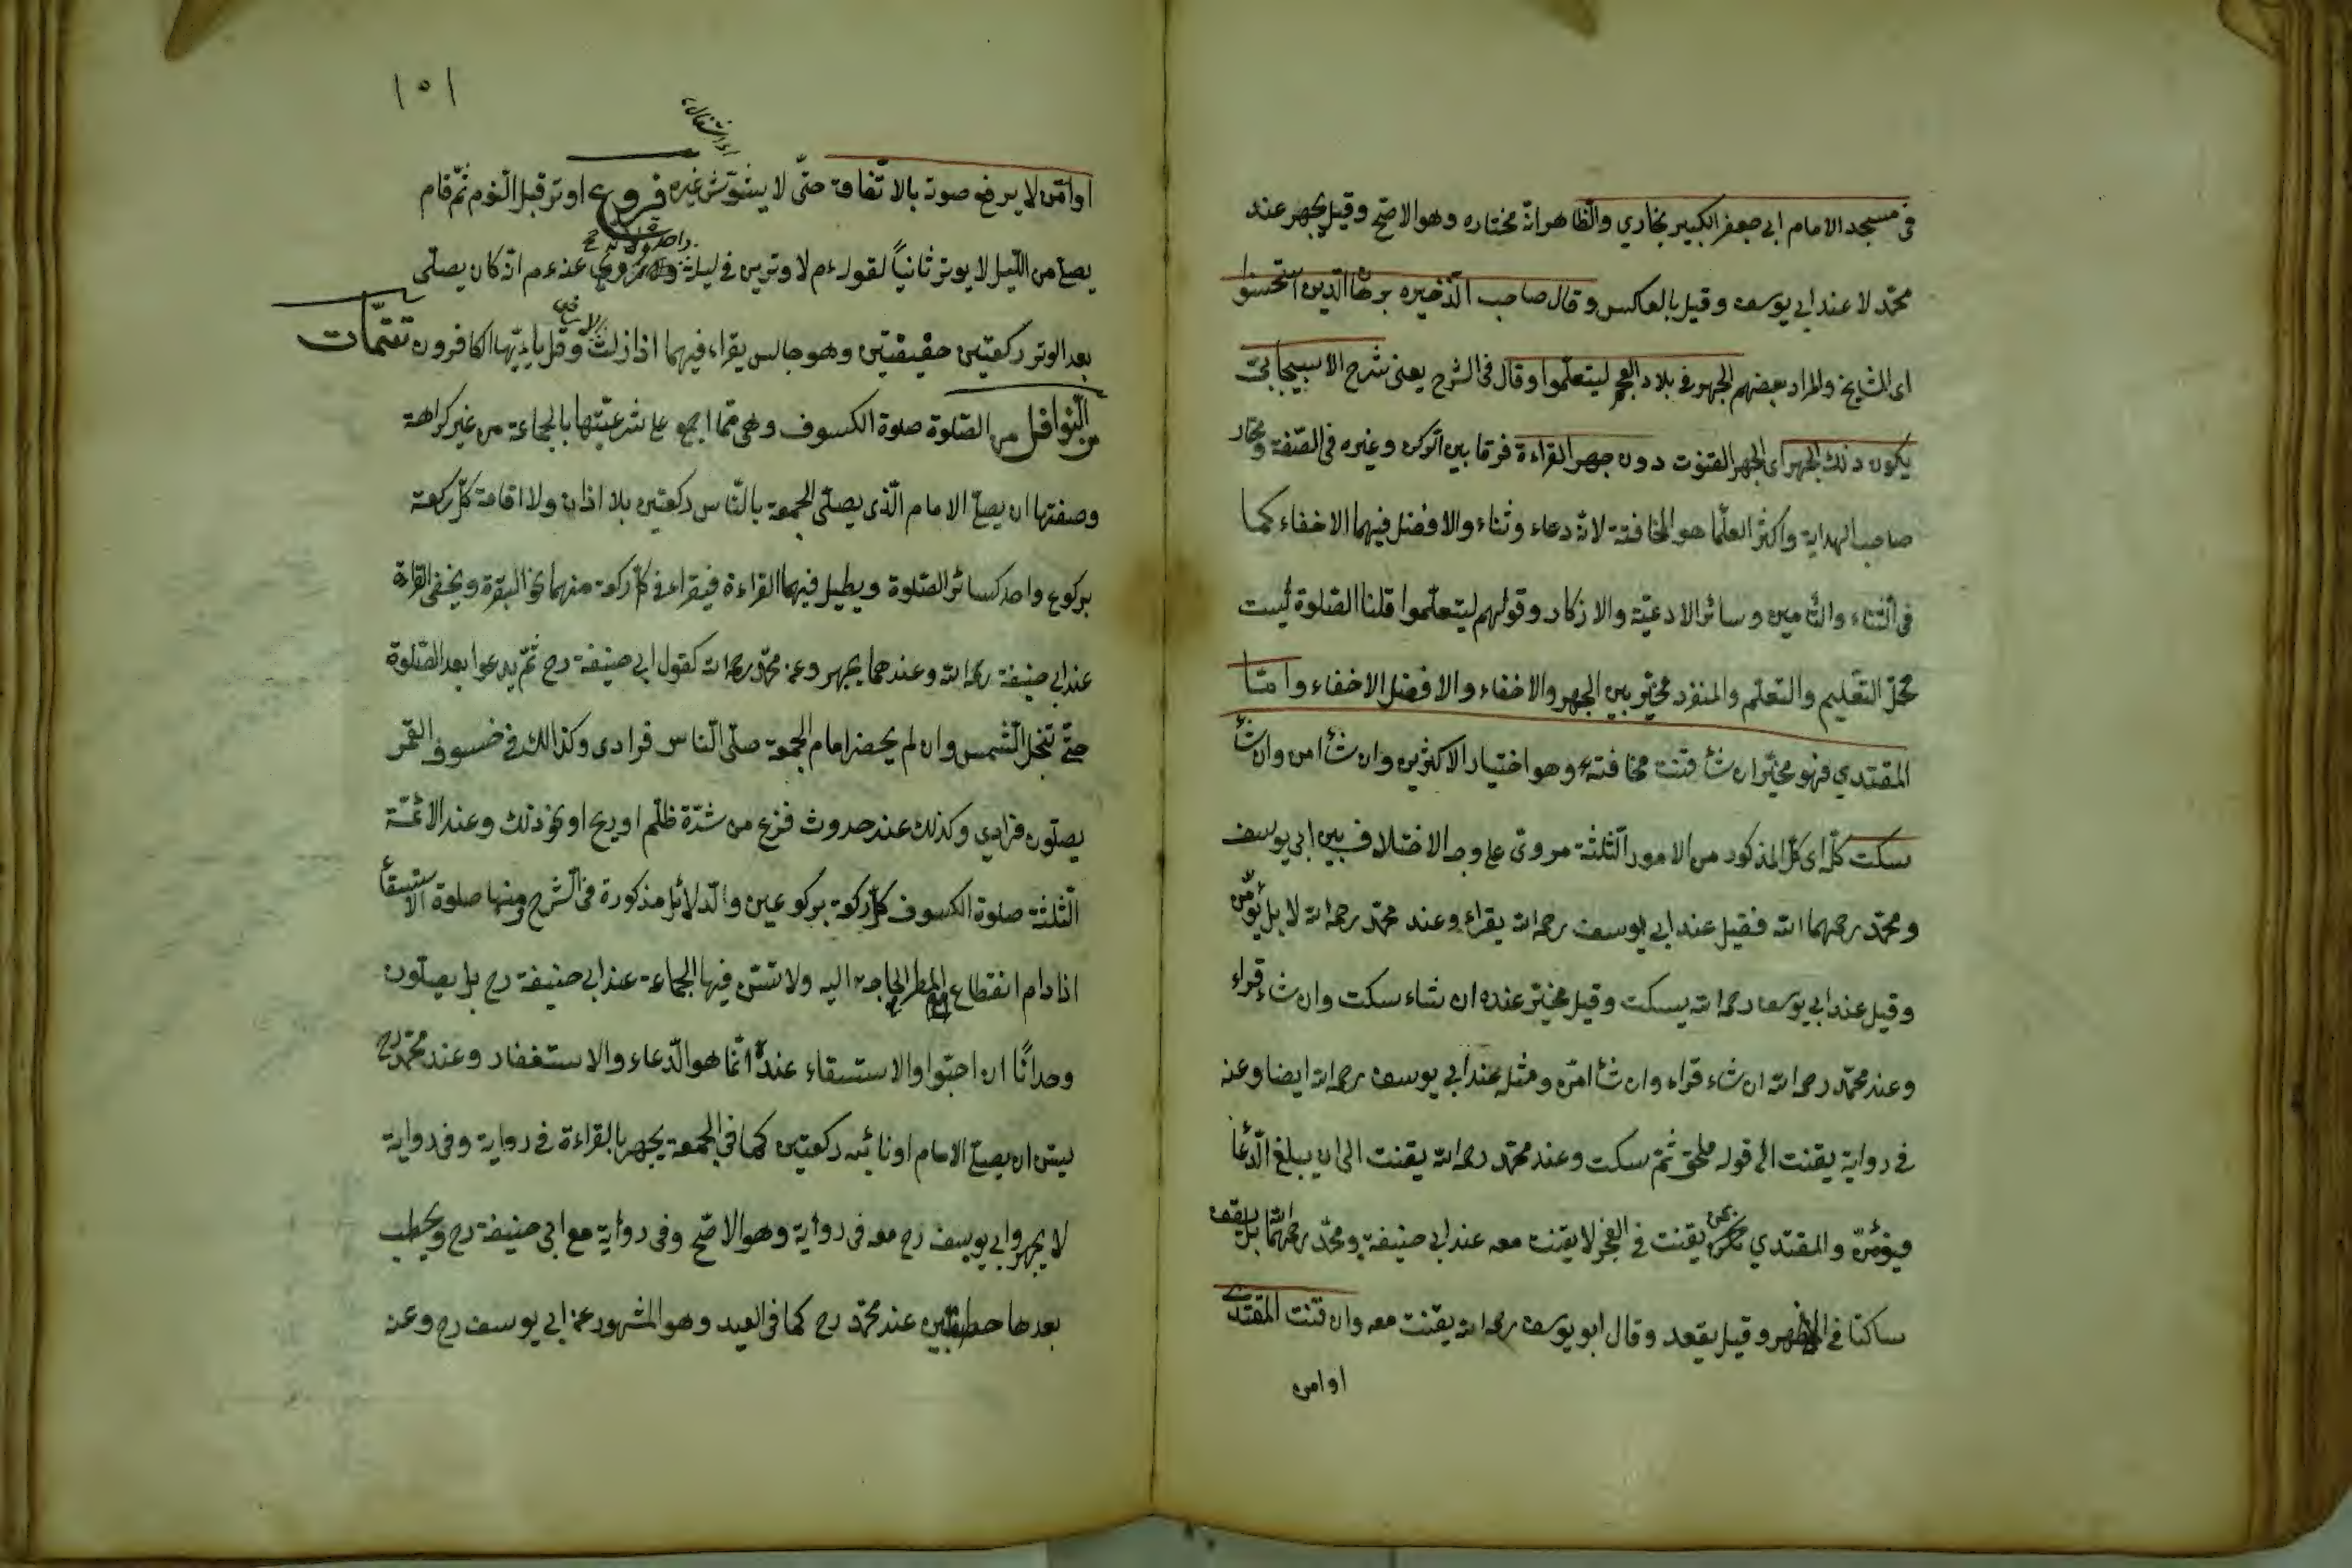 فى مسجد الامام ابى جعفر الكبير بخاري والظاهر انه مختاره وهو الاصح وقيل يجهر عند
محمد لا عند ابي يوسف وقيل بالعكس وقال صاحب الذخيره برهان الدين استحسنوا
اى المشايخ والمراد بعضهم الجهر فى بلاد العجم ليتعلموا وقال فى الشرح يعنى شرح الاسبيجابى
يكون ذلك الجهر اى الجهر القنوت دون جهر القراءة فرقا بين الركن وغيره فى الصفة ومختار
صاحب الهداية واكثر العلما هو المخافتة لانه دعاء وثناء والافضل فيهما الاخفاء كما
فى الثناء والتامين وسائر الادعية والازكار وقولهم ليتعلموا قلنا الصلوة ليست
محل التعليم والتعلم والمنفرد مخير بين الجهر والاخفاء والافضل الاخفاء واما
المقتدي فهو مخير ان شأ قنت مخافته وهو اختيار الاكثرين وان شأ امن وان شأ
سكت كله اى كل المذكور من الامور الثلثة مروى على وجه الاختلاف بين ابى يوسف
ومحمد رحمهما الله فقيل عند ابى يوسف رحمه الله يقراء وعند محمد رحمه الله لا بل يؤمن
وقيل عند ابي يوسف رحمه الله يسكت وقيل مخير عنده ان شاء سكت وان شاء قراء
وعند محمد رحمه الله ان شاء قراء وان شأ امن ومثله عند ابي يوسف رحمه الله ايضا وعنه
فى رواية يقنت الى قوله ملحق ثم سكت وعند محمد رحمه الله يقنت الى ان يبلغ الدعأ
فيؤمن والمقتدي بمن يقنت فى الفجر لا يقنت معه عند ابى حنيفة ومحمد رحمهما الله بل يقف
ساكتا فى الاظهر وقيل يقعد وقال ابو يوسف رحمه الله يقنت معه وان قنت المقتدى
او امن
١٥١
او امن لا يرفع صوته بالاتفاق حتى لا يشوش غيره فروع اوتر قبل النوم ثم قام
يصلى من الليل لا يوتر ثانياً لقوله عم لا وترين فى ليلة عنه عم انه كان يصلى
بعد الوتر ركعتين خفيفتين وهو جالس يقراء فيهما اذا زلزلت وقل يا ايها الكافرون تتمات
من النوافل من الصلوة صلوة الكسوف وهى مما اجمع على شرعيتها بالجماعة من غير كراهة
وصفتها ان يصلى الامام الذى يصلى الجمعة بالناس ركعتين بلا اذان ولا اقامة كل ركعة
بركوع واحد كسائر الصلوة ويطيل فيهما القراءة فيقراء فى كل ركعة منهما نحو البقرة ويخفى القراة
عند ابى حنيفة رحمه الله وعندهما يجهر وعن محمد رحمه الله كقول ابى حنيفة رح ثم يدعوا بعد الصلوة
حتى تنجل الشمس وان لم يحضر امام الجمعة صلى الناس فرادى وكذالك فى خسوف القمر
يصلون فرادي وكذلك عند حدوث فزع من شدة ظلم او ريح او نحو ذلك وعند الائمة
الثلثة صلوة الكسوف كل ركعة بركوعين والدلائل مذكورة فى الشرح ومنها صلوة الاستسقأ
اذا دام انقطاع المطر مع الحاجة اليه ولا تسن فيها الجماعة عند ابى حنيفة رح بل يصلون
وحدانًا ان احبوا والاستسقاء عنده انما هو الدعاء والاستغفار وعند محمد رح
يسن ان يصلى الامام او نائبه ركعتين كما فى الجمعة يجهر بالقراءة فى رواية وفى رواية
لا يجهر وابي يوسف رح معه فى رواية وهو الاصح وفى رواية مع ابى حنيفة رح ويخطب
بعدها خطبتين عند محمد رح كما فى العيد وهو المشهور عن ابى يوسف رح وعن